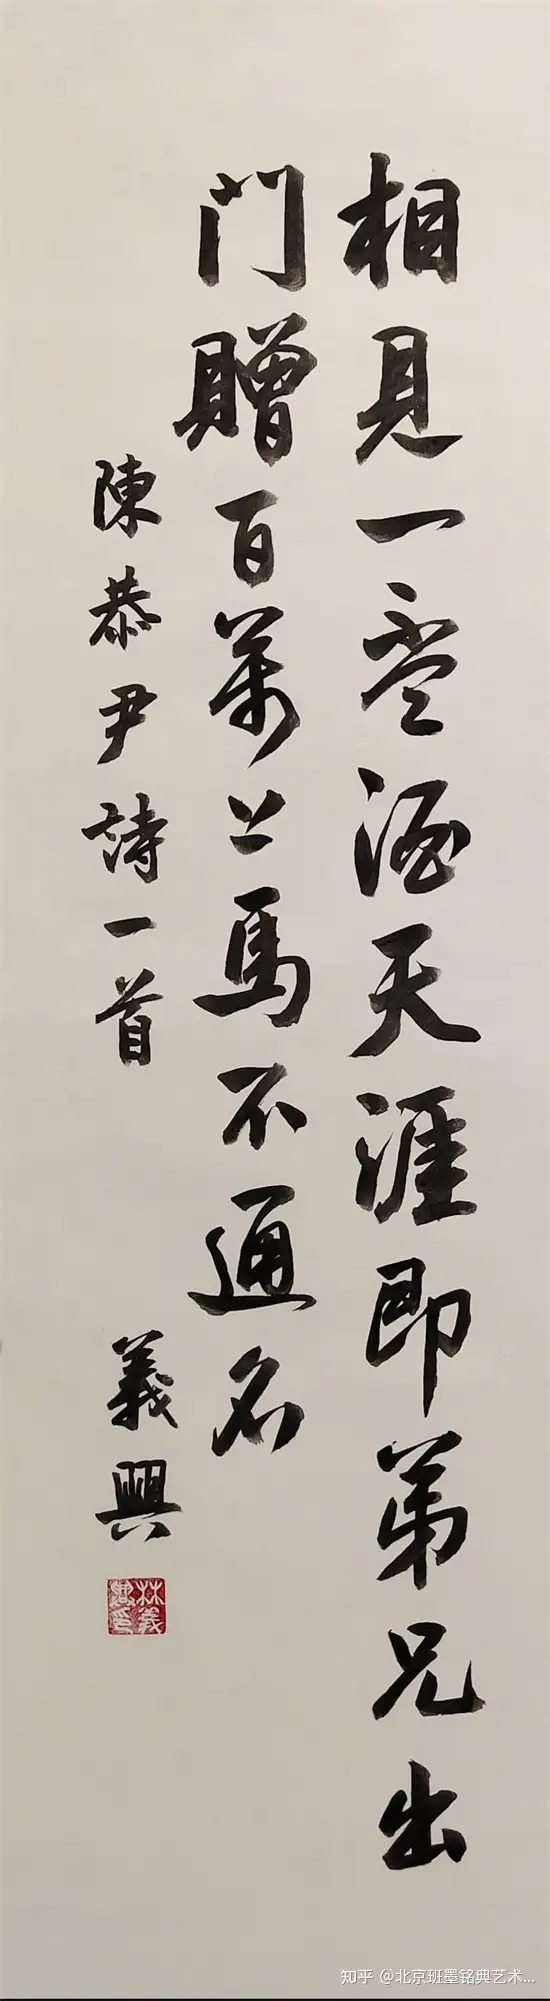 相見一壺酒天涯即弟兄出
門贈百萬上馬不通名
陳恭尹詩一首
義興
林義興印
知乎 @北京班墨铭典艺术...